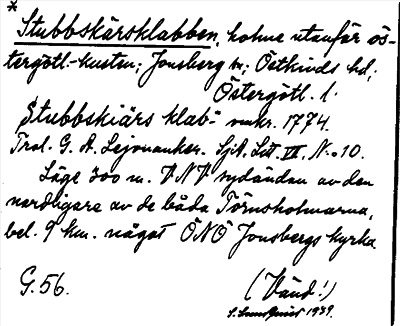 *
Stubbskärsklabben, holme utanför ös-
tergötl.-kusten; Jonsberg sn; Östkinds hd;
Östergötl. l.
Stubbskiärs klab- omkr. 1774.
Trol. G. A. Lejonancker. Sjk. Lit. VI. N:o 10.
Läge 300 m. VNV sydändan av den
nordligare av de båda Törnsholmarna,
bel. 9 km. något ÖNÖ Jonsbergs kyrka.
G. 56. (Vänd!)
1939.